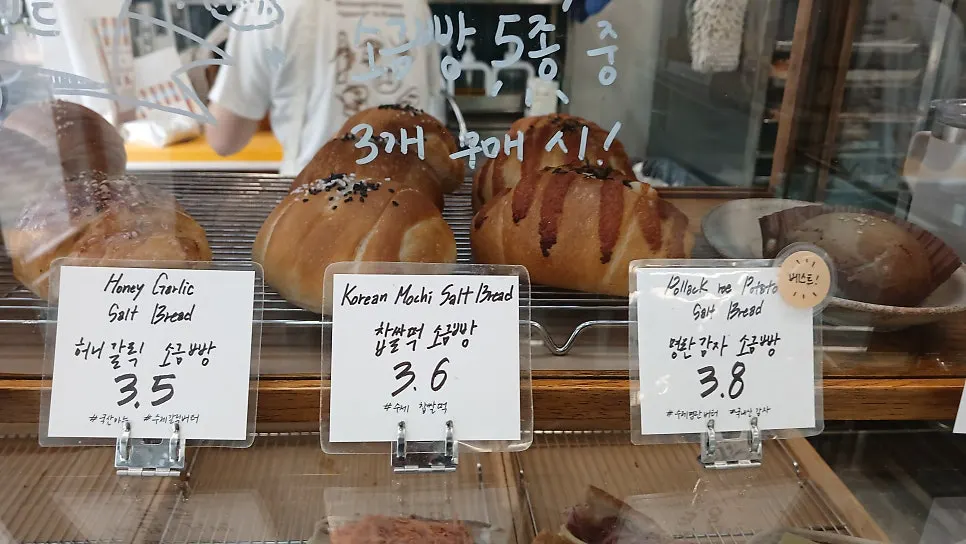 소금빵 5종 중
3개 구매 시!
Honey Garlic
Salt Bread
허니 갈릭 소금빵
3.5
#국산마늘 #수제갈릭버터
Korean Mochi Salt Bread
찹쌀떡 소금빵
3.6
#수제 찹쌀떡
베스트!
Pollack roe Potato
Salt Bread
명란 감자 소금빵
3.8
#수제명란버터 #국내산 감자